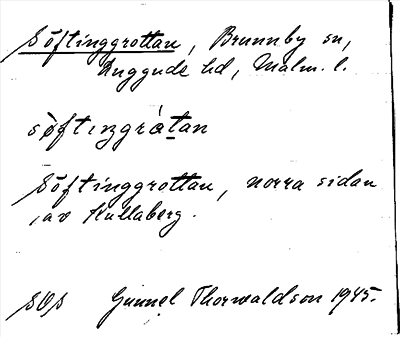 Söftinggrottan, Brunnby sn,
Luggude hd, Malm. l.
søftıŋgràtan
Söftinggrottan, norra sidan
av Kullaberg.
SOS Gunnel Thorwaldson 1945.